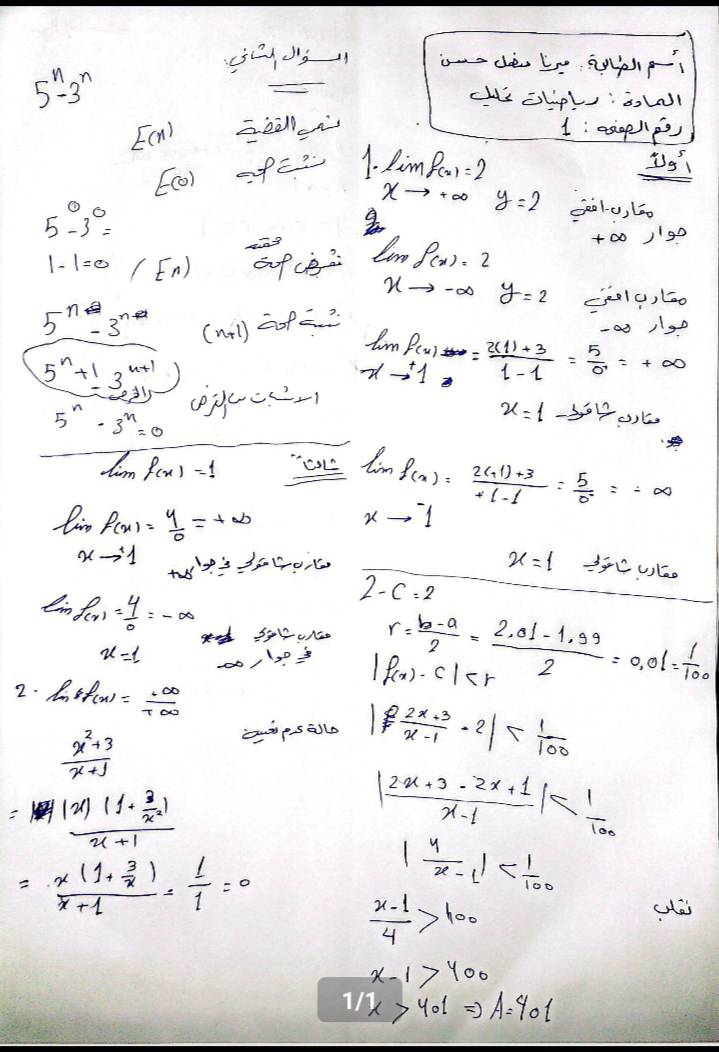 أسم الطالبة: ميرنا مفضل حسن
المادة: رياضيات تحليل
رقم الصفحه: 1
أولاً
1. lim f(x) = 2
x → +∞ y = 2 مقارب افقي
جوار +∞
lim f(x) = 2
x → -∞ y = 2 مقارب افقي
جوار -∞
lim f(x) = 2(1)+3 / 1-1 = 5/0 = +∞
x → +1
x = 1 مقارب شاقولي
lim f(x) = 2(+1)+3 / +1-1 = 5/0 = -∞
x → -1
x = 1 مقارب شاقولي
2 - C = 2
r = b-a / 2 = 2,01 - 1,99 / 2 = 0,01 = 1/100
|f(x) - C| < r
|2x+3 / x-1 - 2| < 1/100
|2x+3-2x+1 / x-1| < 1/100
|4 / x-1| < 1/100
نقلب
x-1 / 4 > 100
x-1 > 400
x > 401 ⇒ A = 401
السؤال الثاني:
5ⁿ - 3ⁿ
نسمي القضية E(n)
E(0)
5⁰ - 3⁰ =
1 - 1 = 0
نفرض صحة (En)
(n+1) صحة
5ⁿ+1 - 3ⁿ⁺¹
الاثبات من الفرض
5ⁿ - 3ⁿ = 0
ثالثاً
lim f(x) = 1
lim f(x) = 4/0 = +∞
x → +1
مقارب شاقولي في جوار +∞
lim f(x) = 4/0 = -∞
x = 1
مقارب شاقولي
في جوار -∞
2 - lim f(x) = +∞ / +∞
حالة عدم تعيين
x²+3 / x+1
= (x) (1 + 3/x²) / x+1
= x (1 + 3/x) / x+1 = 1/1 = 0
1/1